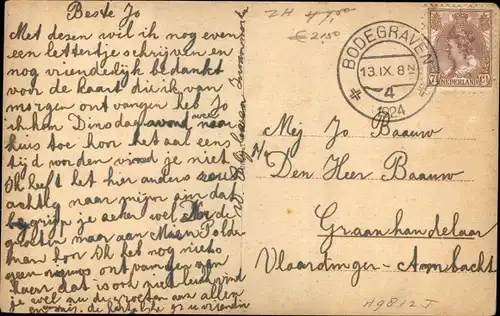 Beste Jo
Met dezen wil ik nog even
een lettertje schrijven en
nog vriendelijk bedankt
voor de kaart die ik van
morgen ontvangen heb Jo
ik ben Dinsdag avond weer naar
huis toe hoor het zal eens
tijd worden vind je niet
Ik heb het hier anders
achtig naar mijn zin dat
begrijp je zeker wel de
groeten maar aan
man hoor Ik heb nog niets
geen ontvangen van
haar dat is ook niet
je wel nu de groeten aan allen
en de hartelijkste van je vriendin
ZH
€ 2,50
BODEGRAVEN
13.IX. 8-
4
1924
7½ ct
NEDERLAND
Mej Jo Baauw
p/a Den Heer Baauw
Graanhandelaar
Vlaardinger-Ambacht
A9812J